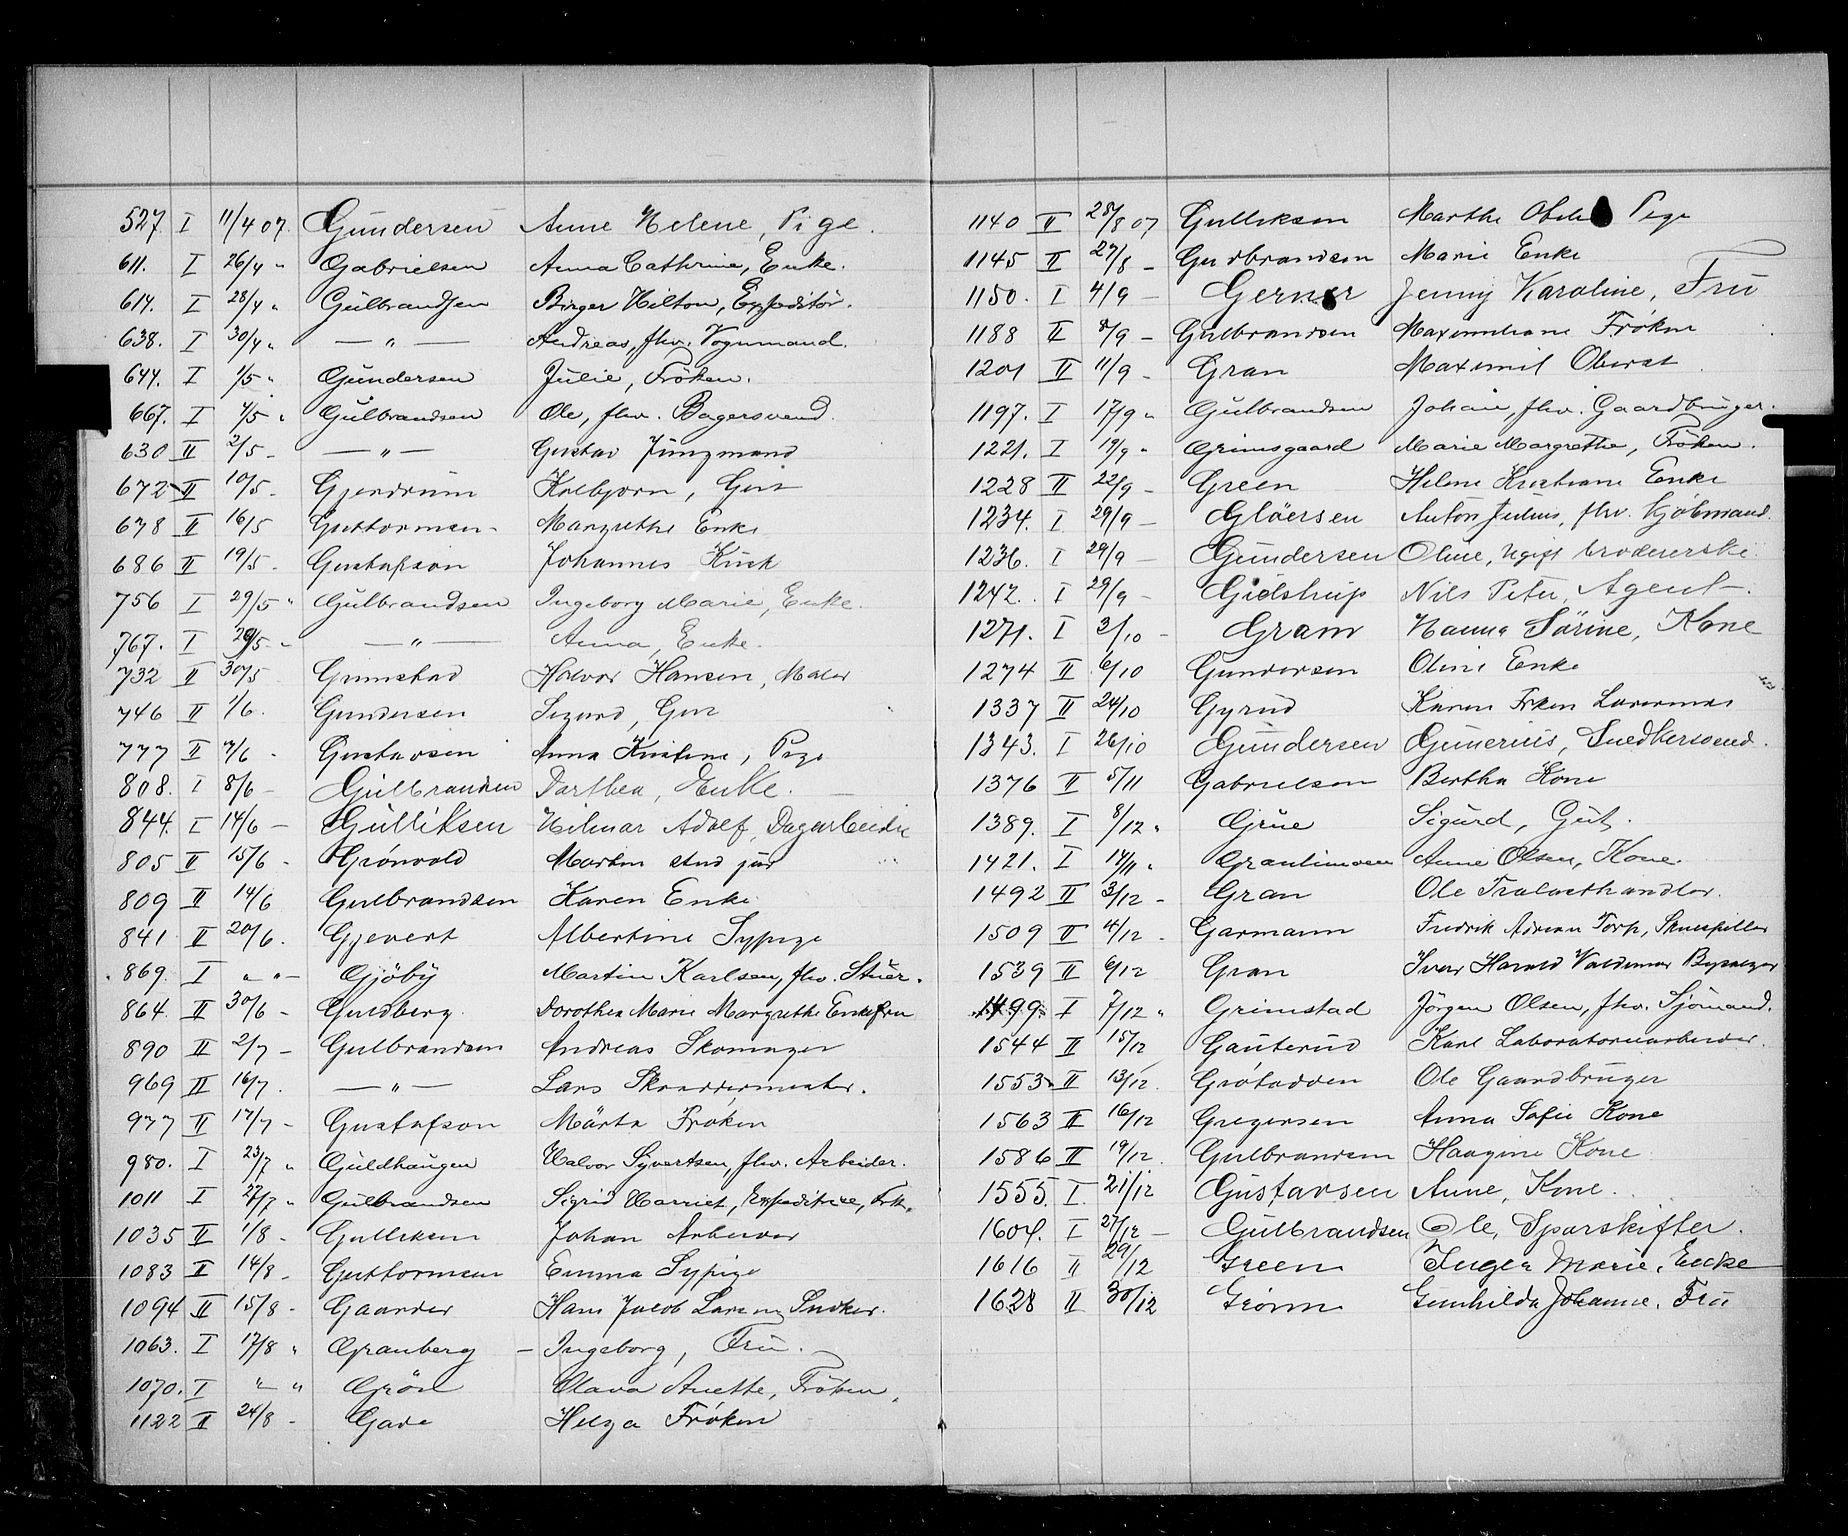 527 I 11/4 07. Gundersen Anne Helene, Pige.
611. I 26/4 „ Gabrielsen Anna Cathrine, Enke.
614. I 28/4 „ Gulbrandsen Birger Hilton, Expeditör.
638. I 30/4 „ — „ — Andreas, fhv. Vognmand.
644. I 1/5 „ Gundersen Julie, Fröken.
667. I 4/5 „ Gulbrandsen Ole, fhv. Bagersvend.
630 II 2/5 - — „ — Gustav Jungmand
672 II 10/5 - Gjerdrum Kolbjørn, Gut
678 II 16/5 Guttormsen - Margrethe Enke
686 II 19/5 - Gustafson Johannes Kusk
756 I 29/5 „ Gulbrandsen Ingeborg Marie, Enke.
767. I 29/5 - — „ — Anna, Enke.
732 II 30/5 Grimstad Halvor Hansen, Maler
746 II 1/6. Gundersen Sigurd, Gut
777 II 7/6 - Gustavsen Anna Kristine, Pige
808. I 8/6 - Gulbrandsen Dorthea, Enke.
844. I 14/6 - Gulliksen Hilmar Adolf, Dagarbeider
805 II 15/6 - Grönvold Morten stud jur
809 II 14/6 Gulbrandsen Karen Enke
841 II 20/6. Gjevert Albertine Sypige
869. I „ „ - Gjöby Martin Karlsen, fhv. Stuer.
864. II 30/6 - Guldberg. Dorothea Marie Margrethe Enkefru
890 II 2/7 - Gulbrandsen Andreas Skomager
969 II 16/7. — „ — Lars Skreddermester.
977 II 17/7 - Gustafson Märta Frøken
980. I 23/7 „ Guldhaugen Halvor Syvertsen, fhv. Arbeider.
1011 I 27/7 „ Gulbrandsen Sigrid Harriet, Expeditrice, Frk.
1035 II 1/8 - Gulliksen Johan Arbeider
1083 II 14/8 - Guttormsen Emma Sypige
1094 II 15/8 - Gaarder Hans Jacob Larsen Snedker.
1063. I 17/8 „ Granberg - Ingeborg, Fru.
1070. I „ „ Olava Anette, Fröken.
1122 II 24/8 - Gade Helga Frøken
1140 II 28/8 07 Gulliksen Marthe Pige
1145 II 27/8 - Gudbrandsen Marie Enke
1150. I 4/9 - Gerner Jenny Karoline, Fru
1188 II 8/9 - Gulbrandsen Maximiliane Frøken
1201 II 11/9 - Gran Maximil Oberst
1197. I 17/9 „ Gulbrandsen Johan, fhv. Gaardbruger.
1221. I 19/9 „ Grimsgaard Marie Margrethe, Fröken.
1228 II 22/9 - Green Helene Kristiane Enke
1234. I 29/9 - Glöersen Anton Julius, fhv. Kjöbmand.
1236. I 29/9 - Gundersen Oline, ugift broderерske.
1242. I 29/9 - Gidstrup Nils Peter, Agent.
1271. I 3/10 - Gram Hanna Sörine, Kone
1274 II 6/10 Gundersen Oline Enke
1337 II 24/10 Gyrud Karen Frken
1343. I 26/10 Gundersen Gunerius, Snedkersvend.
1376 II 5/11 Gabrielsen Bertha Kone
1389. I 8/12 „ Grue Sigurd, Gut.
1421. I 14/11 „ Anne Olsen, Kone.
1492 II 3/12 - Gran Ole Trelasthandler.
1509 II 4/12 - Garmann Fredrik Adrian Torp, Skuespiller
1539 II 6/12 Gran Iver Harald Valdemar
1499. I 7/12 „ Grimstad Jörgen Olsen, fhv. Sjömand.
1544 II 15/12 Gauterud Karl Laboratoriearbeider.
1553 II 13/12. Ole Gaardbruger
1563 II 16/12 Gregersen Anna Sofie Kone
1586 II 19/12. Gulbrandsen Haagine Kone
1555. I. 21/12 Gustavsen Anne, Kone.
1604. I 27/12 - Gulbrandsen Ole, Sporskifter.
1616 II 29/12 Green Inger Marie, Encke
1628 II 30/12 Grönn Gunhilda Johanne. Fru